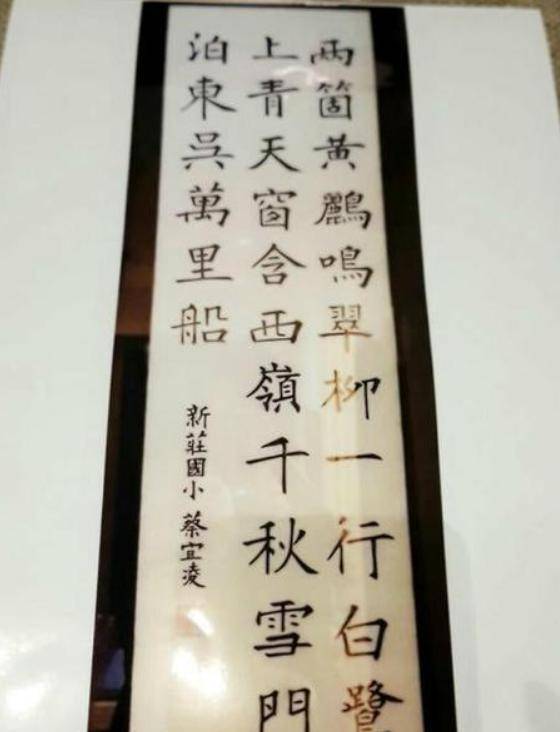 兩箇黃鸝鳴翠柳一行白鷺
上青天窗含西嶺千秋雪門
泊東吳萬里船
新莊國小 蔡宜凌